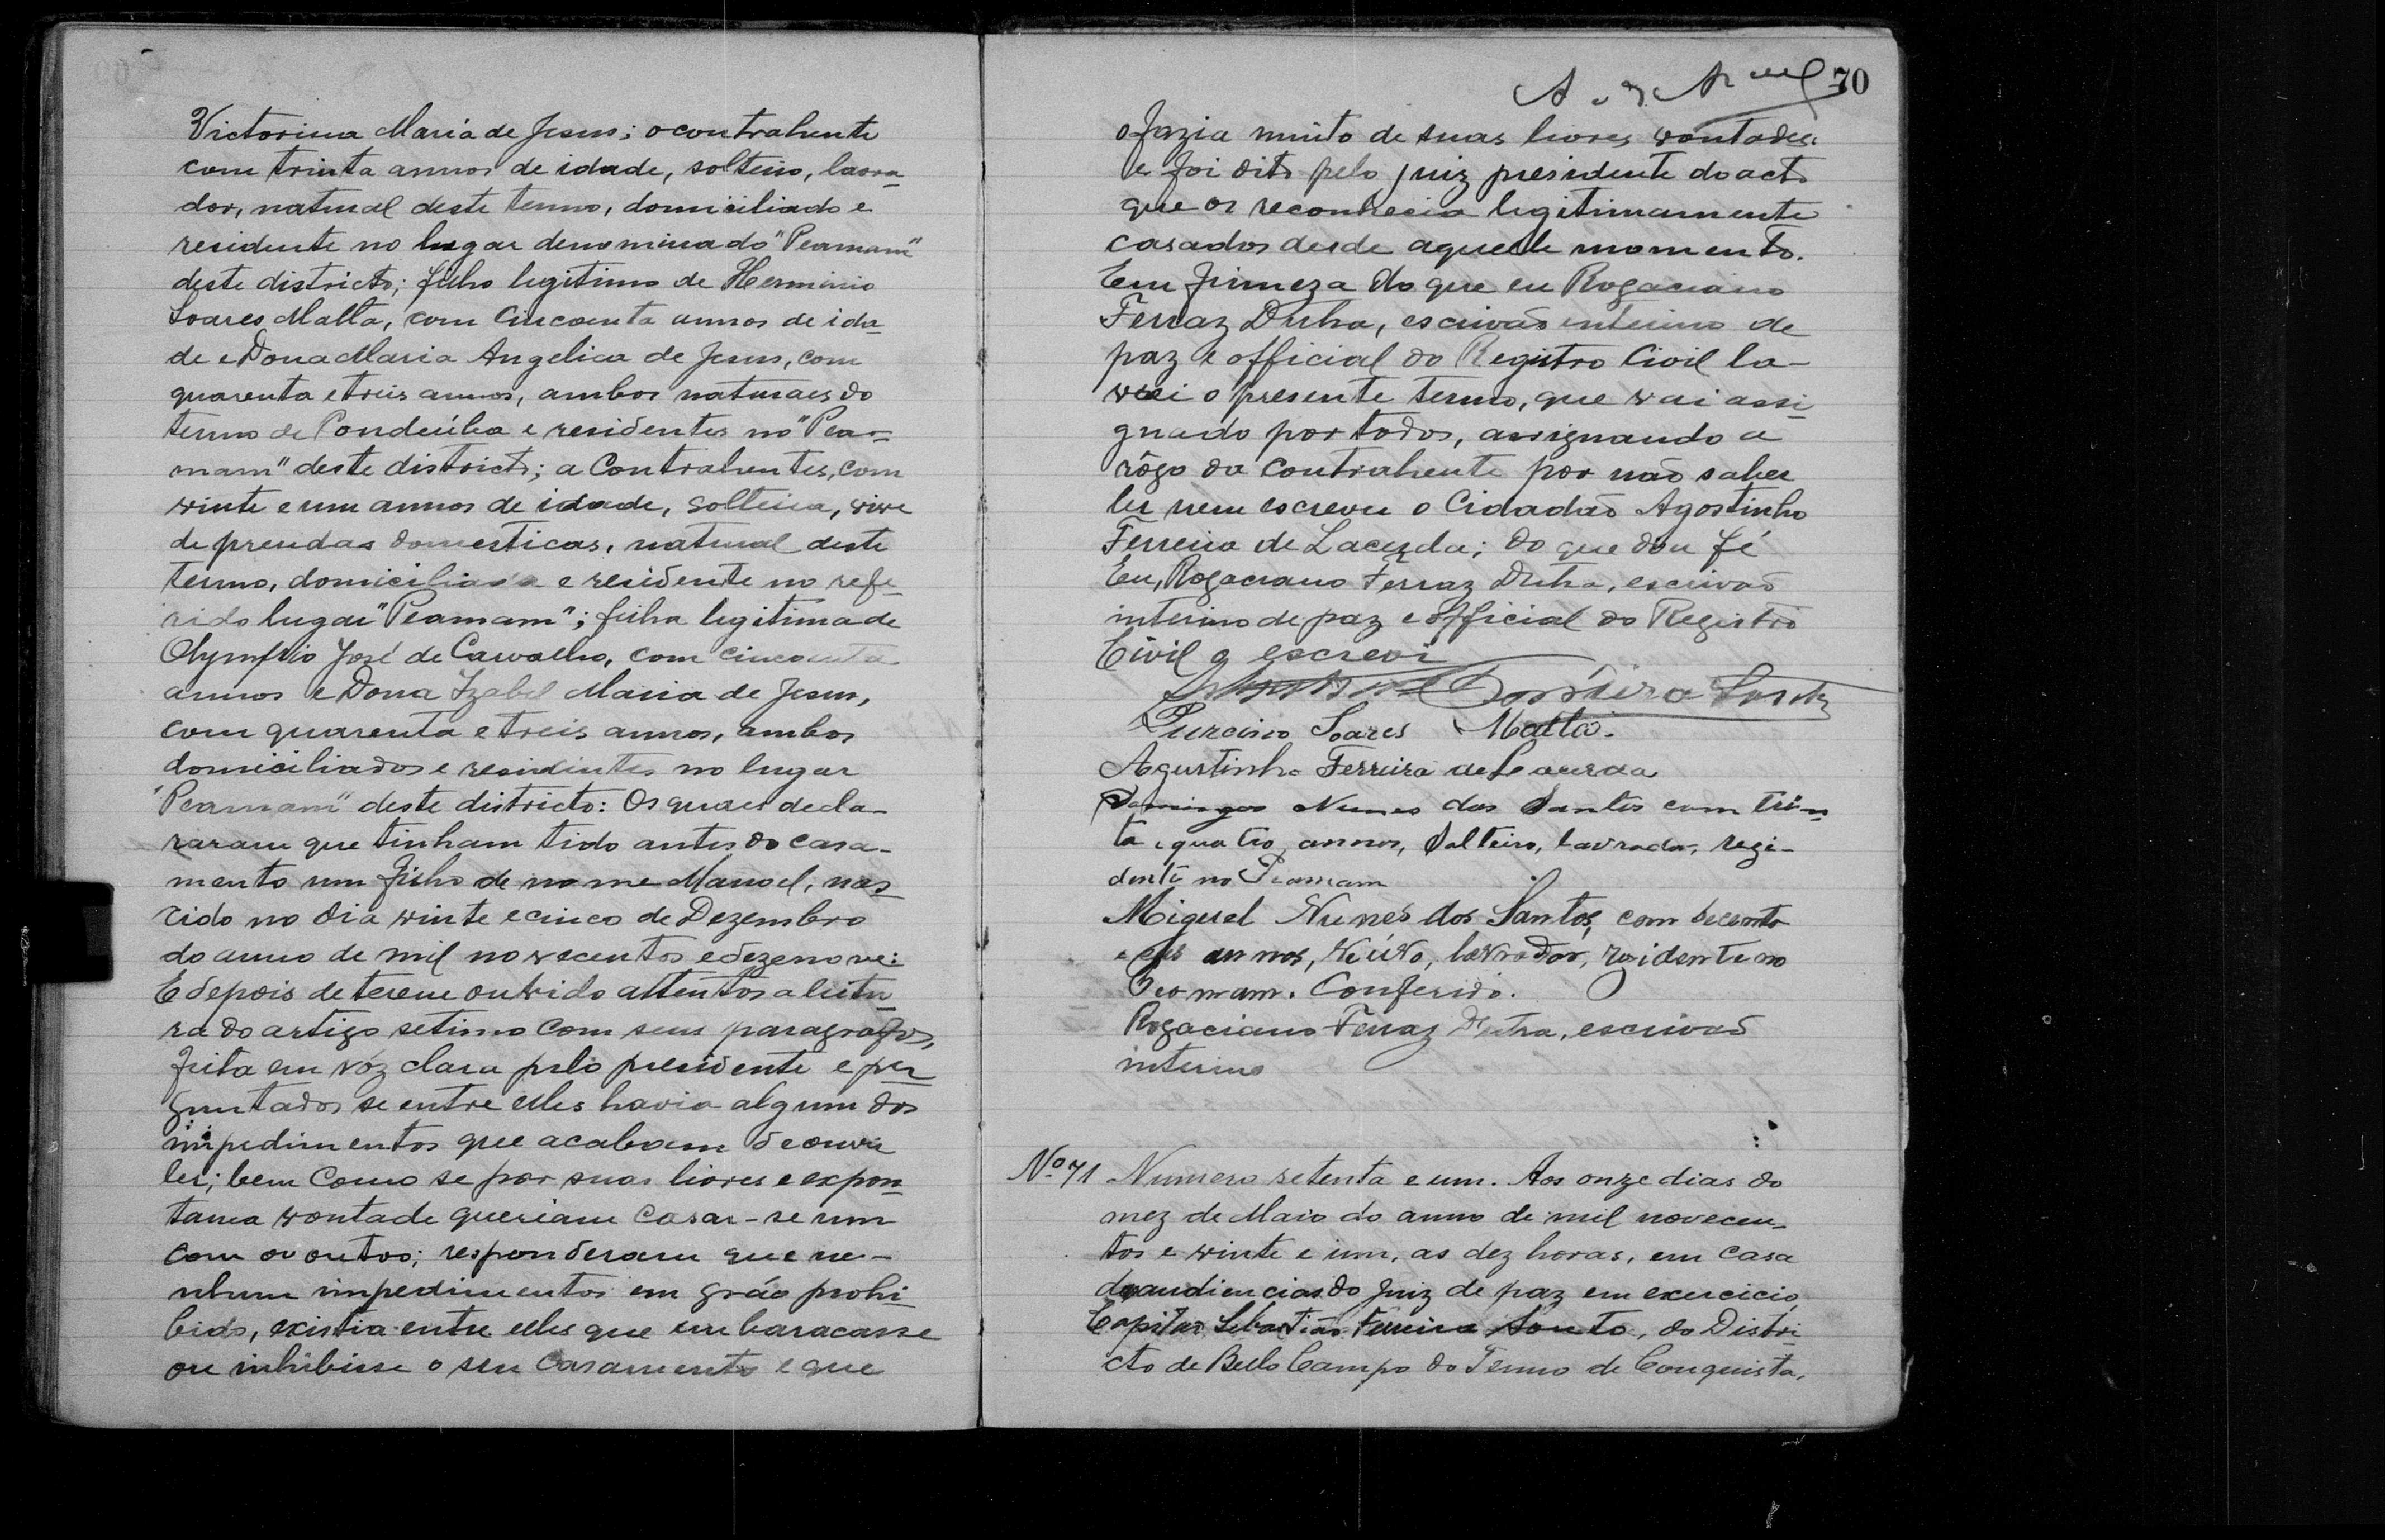 Victorina Maria de Jesus; o contrahente
com trinta annos de idade, solteiro, lavra-
dor, natural deste termo, domiciliado e
residente no lugar denominado "Peramam"
deste districto; filho legitimo de Herminio
Soares Malta, com cincoenta annos de ida-
de e Dona Maria Angelica de Jesus, com
quarenta e treis annos, ambos naturaes do
termo de Condeúba e residentes no "Pera-
mam" deste districto; a Contrahentes, com
vinte e um annos de idade, solteira, vive
de prendas domesticas, natural deste
termo, domiciliada e residente no refe-
rido lugar "Peramam"; filha legitima de
Olympio José de Carvalho, com cincoenta
annos e Dona Izabel Maria de Jesus,
com quarenta e treis annos, ambos
domiciliados e residintes no lugar
"Peramam" deste districto: Os quaes decla-
raram que tinham tido antes do casa-
mento um filho de nome Manoel, nas-
cido no dia vinte e cinco de Dezembro
do anno de mil novecentos e dezenove:
E depois deterem ouvido attentos a leitu-
ra do artigo setimo com seus paragrafos,
feita em vóz clara pelo presidente e per-
guntados se entre elles havia algum dos
impedimentos que acabavam de ouvir
ler; bem como se por suas livres e expon-
tanea vontade queriam casar-se um
com ou outro; responderam que ne-
nhum impedimentos em gráo prohi-
bido, existia entre elles que embaracasse
ou inhibisse o seu casamento e que
70
o fazia muito de suas livres vontades
e foi dito pelo juiz presidente do acto
que os reconhecia legitimamente
casados desde aquelle momento.
Em firmeza do que eu Rogaciano
Ferraz Dutra, escrivão interino de
paz e official do Registro Civil la-
vrei o presente termo, que vai assi-
gnado por todos, assignando a
rôgo da contrahente por não saber
ler nem escrever o Cidadão Agostinho
Ferreira de Lacerda; do que dou fé
Eu, Rogaciano Ferraz Dutra, escrivão
interino de paz e official do Registro
Civil o escrevi
Ferreira Souto
Purcino Soares Malta.
Agustinho Ferreira de Lacerda
Domingos Nunes dos Santos com trin-
ta e quatro annos, Solteiro, lavrador, rezi-
dente no Peramam
Miguel Nunes dos Santos, com secenta
e annos, Viúvo, lavrador, rezidente no
Peramam. Conferido.
Rogaciano Ferraz Dutra, escrivão
interino
Nº 71 Numero setenta e um. Aos onze dias do
mez de Maio do anno de mil novecen-
tos e vinte e um, as dez horas, em casa
de audiencias do Juiz de paz em exercicio,
Capitão Sebastião Ferreira Souto, do Distri-
cto de Bello Campo do Termo de Conquista,